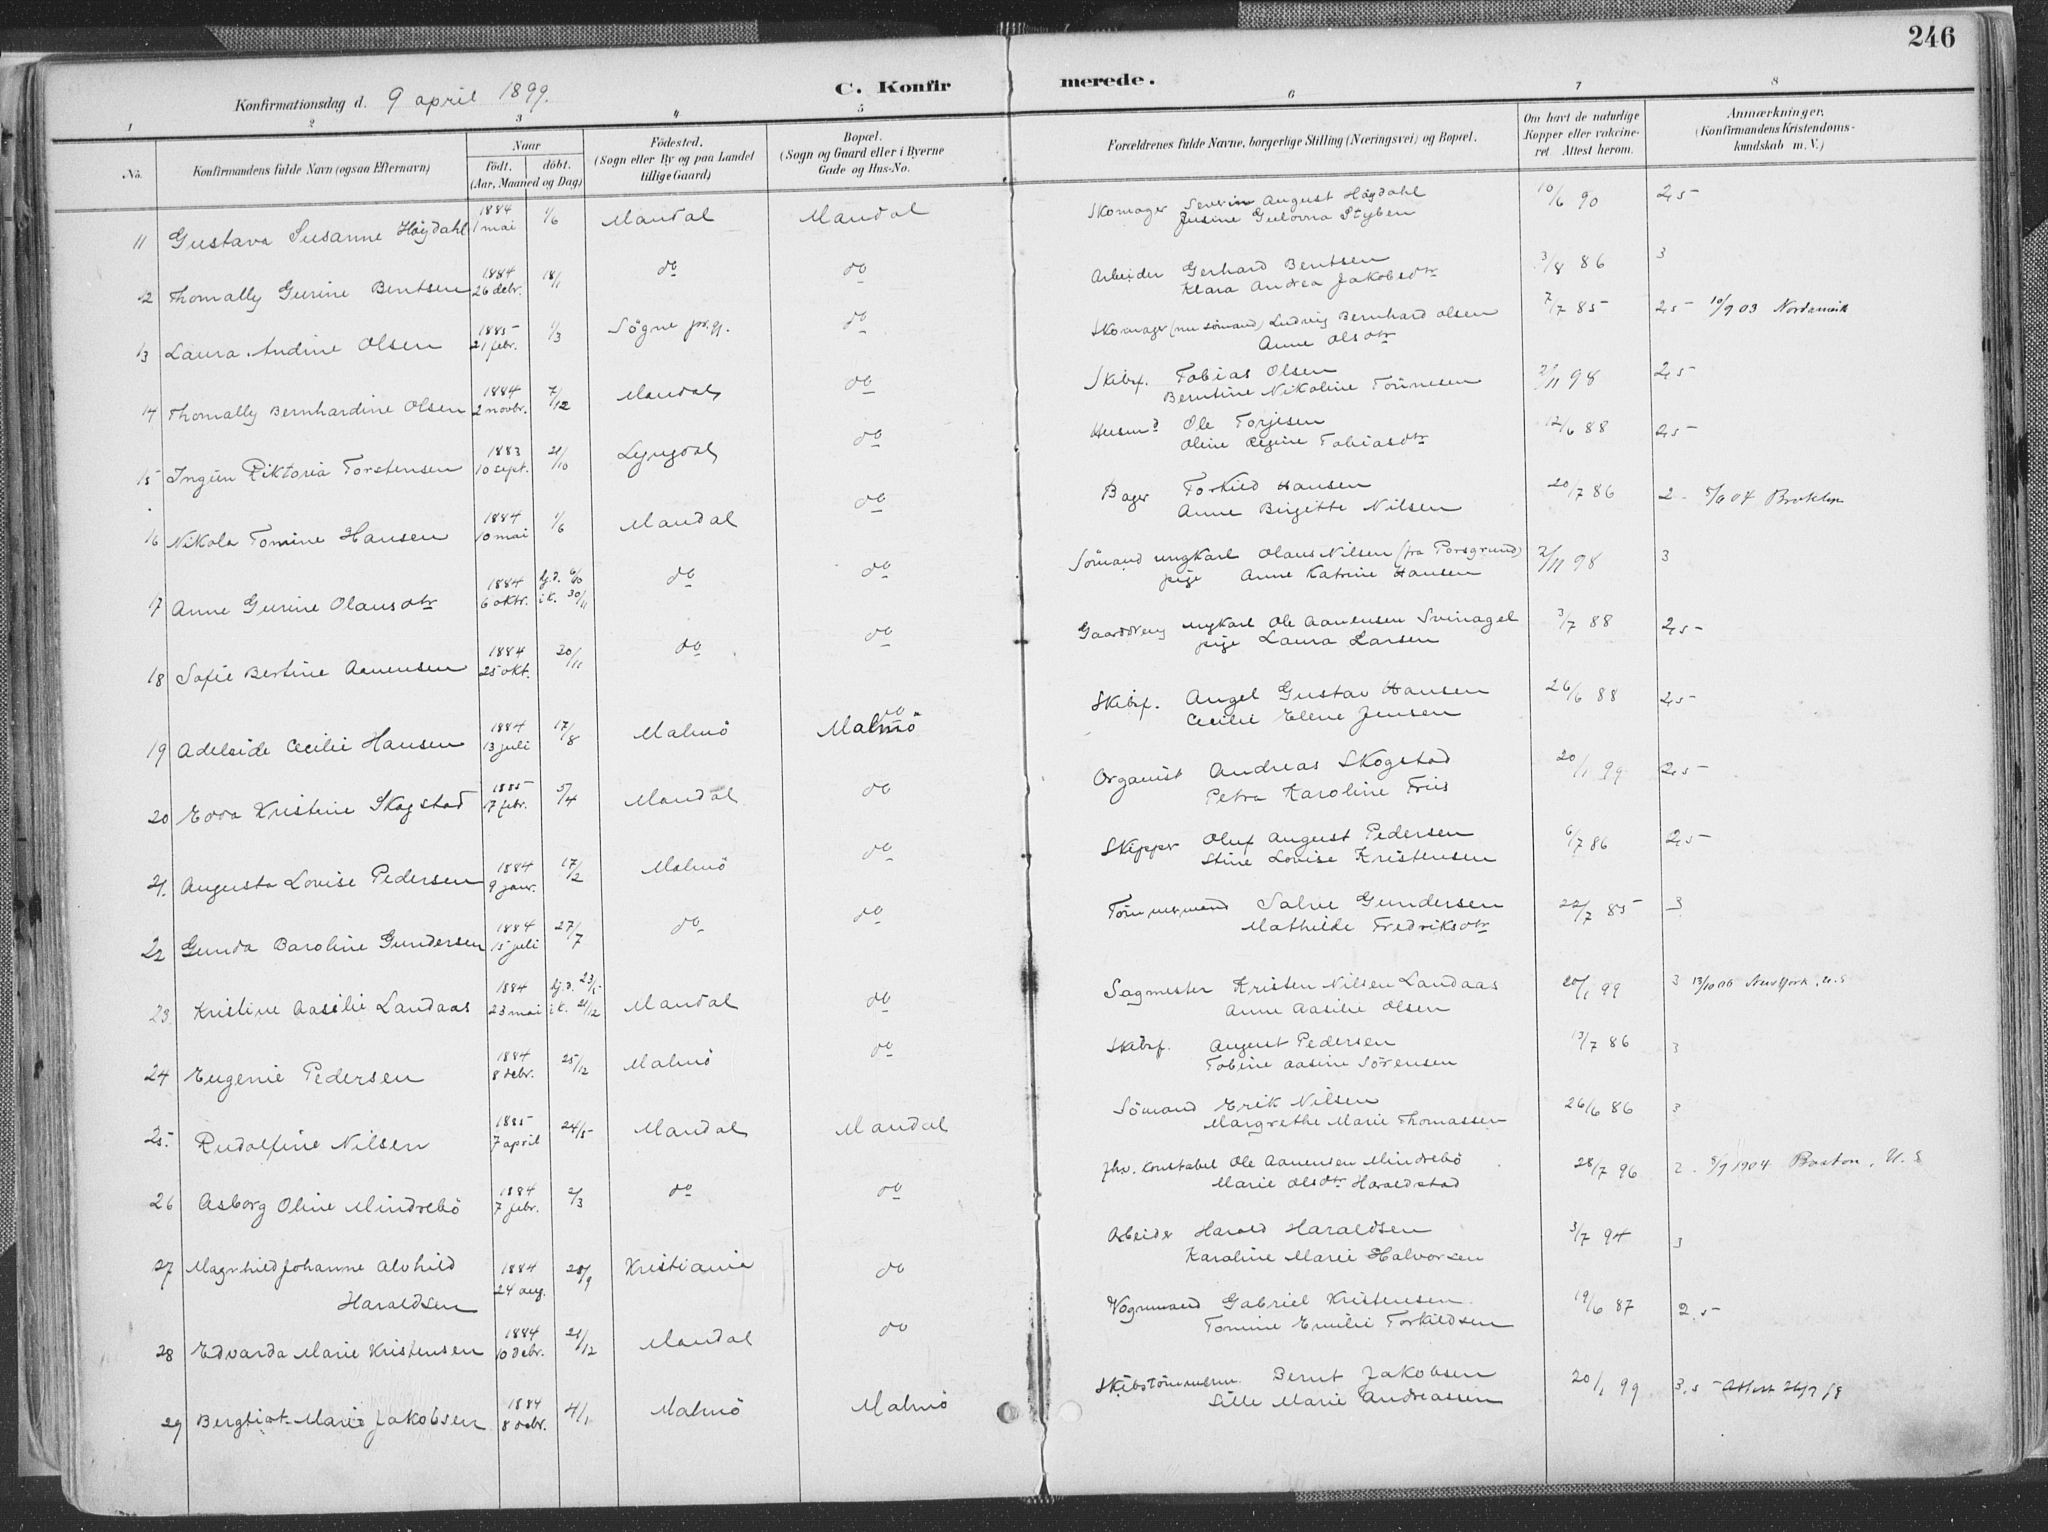 246
Konfirmationsdag d. 9 april 1899. C. Konfirmerede.
1 2 3 4 5 6 7 8
No. Konfirmandens fulde Navn (ogsaa Efternavn) Naar födt. döbt. (Aar, Maaned og Dag) Födested. (Sogn eller By og paa Landet tillige Gaard) Bopæl. (Sogn og Gaard eller i Byerne Gade og Hus-No. Forældrenes fulde Navne, borgerlige Stilling (Næringsvei) og Bopæl. Om havt de naturlige Kopper eller vakcineret. Attest herom. Anmærkninger. (Konfirmandens Kristendomskundskab m. V.)
11 Gustava Susanne Høydahl 1884 1 mai 1/6 Mandal Mandal Skomager Severin August Høydahl 10/6 90 2,5
Jusine Gulovna Styben
12 Thomally Gurine Bentsen 1884 26 debr. 18/1 do do Arbeider Gerhard Bentsen 3/8 86 3
Klara Andrea Jakobsdtr
13 Laura Andine Olsen 1885 21 febr. 1/3 Sögne pr.gj. do Skomager (nu sömand) Ludvig Bernhard Olsen 7/7 85 2,5 10/9 03 Nordamerik
Anne Olsdtr
14 Thomally Bernhardine Olsen 1884 2 novbr. 7/12 Mandal do Skibsf. Tobias Olsen 2/11 98 2,5
Berntine Nikoline Tönnesen
15 Ingün Viktoria Torstensen 1883 10 sept. 21/10 Lyngdal do Husmd Ole Torjesen 12/6 88 2,5
Oline Regine Tobiasdtr
16 Nikola Tomine Hansen 1884 10 mai 1/6 Mandal do Bager Torkild Hansen 20/7 86 2 - 8/9 04 Broklyn
Anne Birgitte Nilsen
17 Anne Gurine Olausdtr 1884 6 oktr. hj.d. 6/10 i k. 30/11 do do Sömand ungkarl Olaus Nilsen (fra Porsgrund) 2/11 98 3
pige Anne Katrine Hansen
18 Sofie Bertine Aanensen 1884 25 okt. 20/11 do do Gaardsdreng ungkarl Ole Aanensen Svinagel 3/7 88 2,5
pige Laura Larsen
19 Adeleide Cecilie Hansen 1884 13 juli 17/8 Malmö do Malmö Skibsf. Angel Gustav Hansen 26/6 88 2,5
Cecilie Elene Jensen
20 Evva Kristine Skogstad 1885 17 febr. 5/4 Mandal do Organist Andreas Skogstad 20/1 99 2,5
Petra Karoline Friis
21. Augusta Lovise Pedersen 1884 9 janr. 17/2 Malmö do Skipper Oluf August Pedersen 6/7 86 2,5
Stine Lovise Kristensen
22 Gunda Baroline Gundersen 1884 15 juli 27/7 do do Tömmermand Salve Gundersen 22/7 85 3
Mathilde Fredriksdtr
23. Kristine Aasilie Landaas 1884 23 mai hj.d. 23/5 i k. 21/12 Mandal do Sagmester Kristen Nilsen Landaas 20/1 99 3 13/10 06 New York, U.S
Anne Aasilie Olsen
24 Eugenie Pedersen 1884 8 debr. 25/12 Malmö do Skibsf. August Pedersen 13/7 86 3
Tobine Aasine Sörensen
25. Rudolfine Nilsen 1885 7 april 24/5 Mandal Mandal Sömand Erik Nilsen 26/6 86 3
Margrethe Marie Thomassen
26 Asborg Oline Mindrebö 1884 7 febr. 2/3 do do fhv. Konstabel Ole Aanensen Mindrebö 28/7 96 2. 8/9 1904 Boston, U.S
Marie Olsdtr Haraldstad
27 Magnhild Johanne Alvhild Haraldsen 1884 24 aug. 28/9 Kristiania do Arbeider Harald Haraldsen 3/7 94 3
Karoline Marie Halvorsen
28 Edvarda Marie Kristensen 1884 10 debr. 21/12 Mandal do Vognmand Gabriel Kristensen 19/6 87 2,5
Tomine Emilie Torkildsen
29 Bergliot Marie Jakobsen 1884 8 debr. 4/1 Malmö Malmö Skibstömmerm. Bernt Jakobsen 20/1 99 3,5 Attest
Sille Marie Andreassen